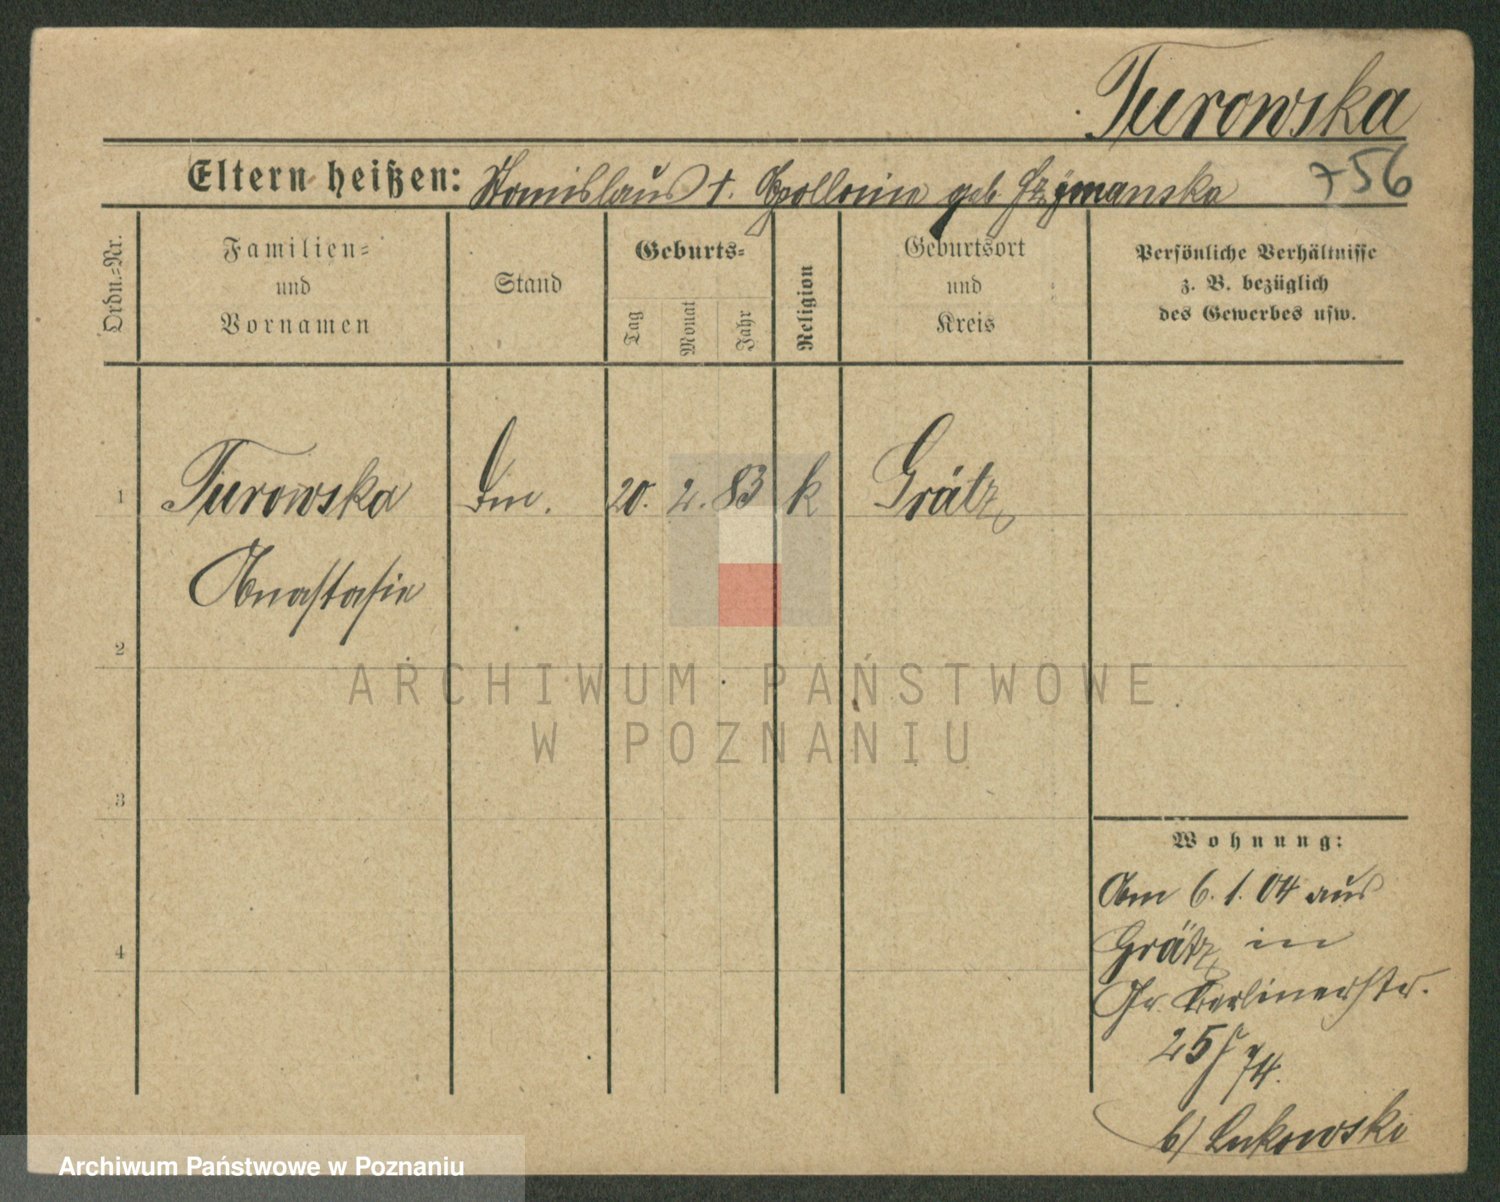 Turowska
Eltern heißen: Stanislaus †. Apollonia geb Szymanska
756
Ordn.=Nr.
Familien=
und
Vornamen
Stand
Geburts=
Tag
Monat
Jahr
Religion
Geburtsort
und
Kreis
Persönliche Verhältnisse
z. B. bezüglich
des Gewerbes usw.
1 Turowska 20. 2. 83 k Grätz
Anastasia
2
3
4
Wohnung:
Am 6. 1. 04 aus
Grätz in
Gr. Berlinerstr.
25
74.
b/ Lukowski
ARCHIWUM PAŃSTWOWE
W POZNANIU
Archiwum Państwowe w Poznaniu